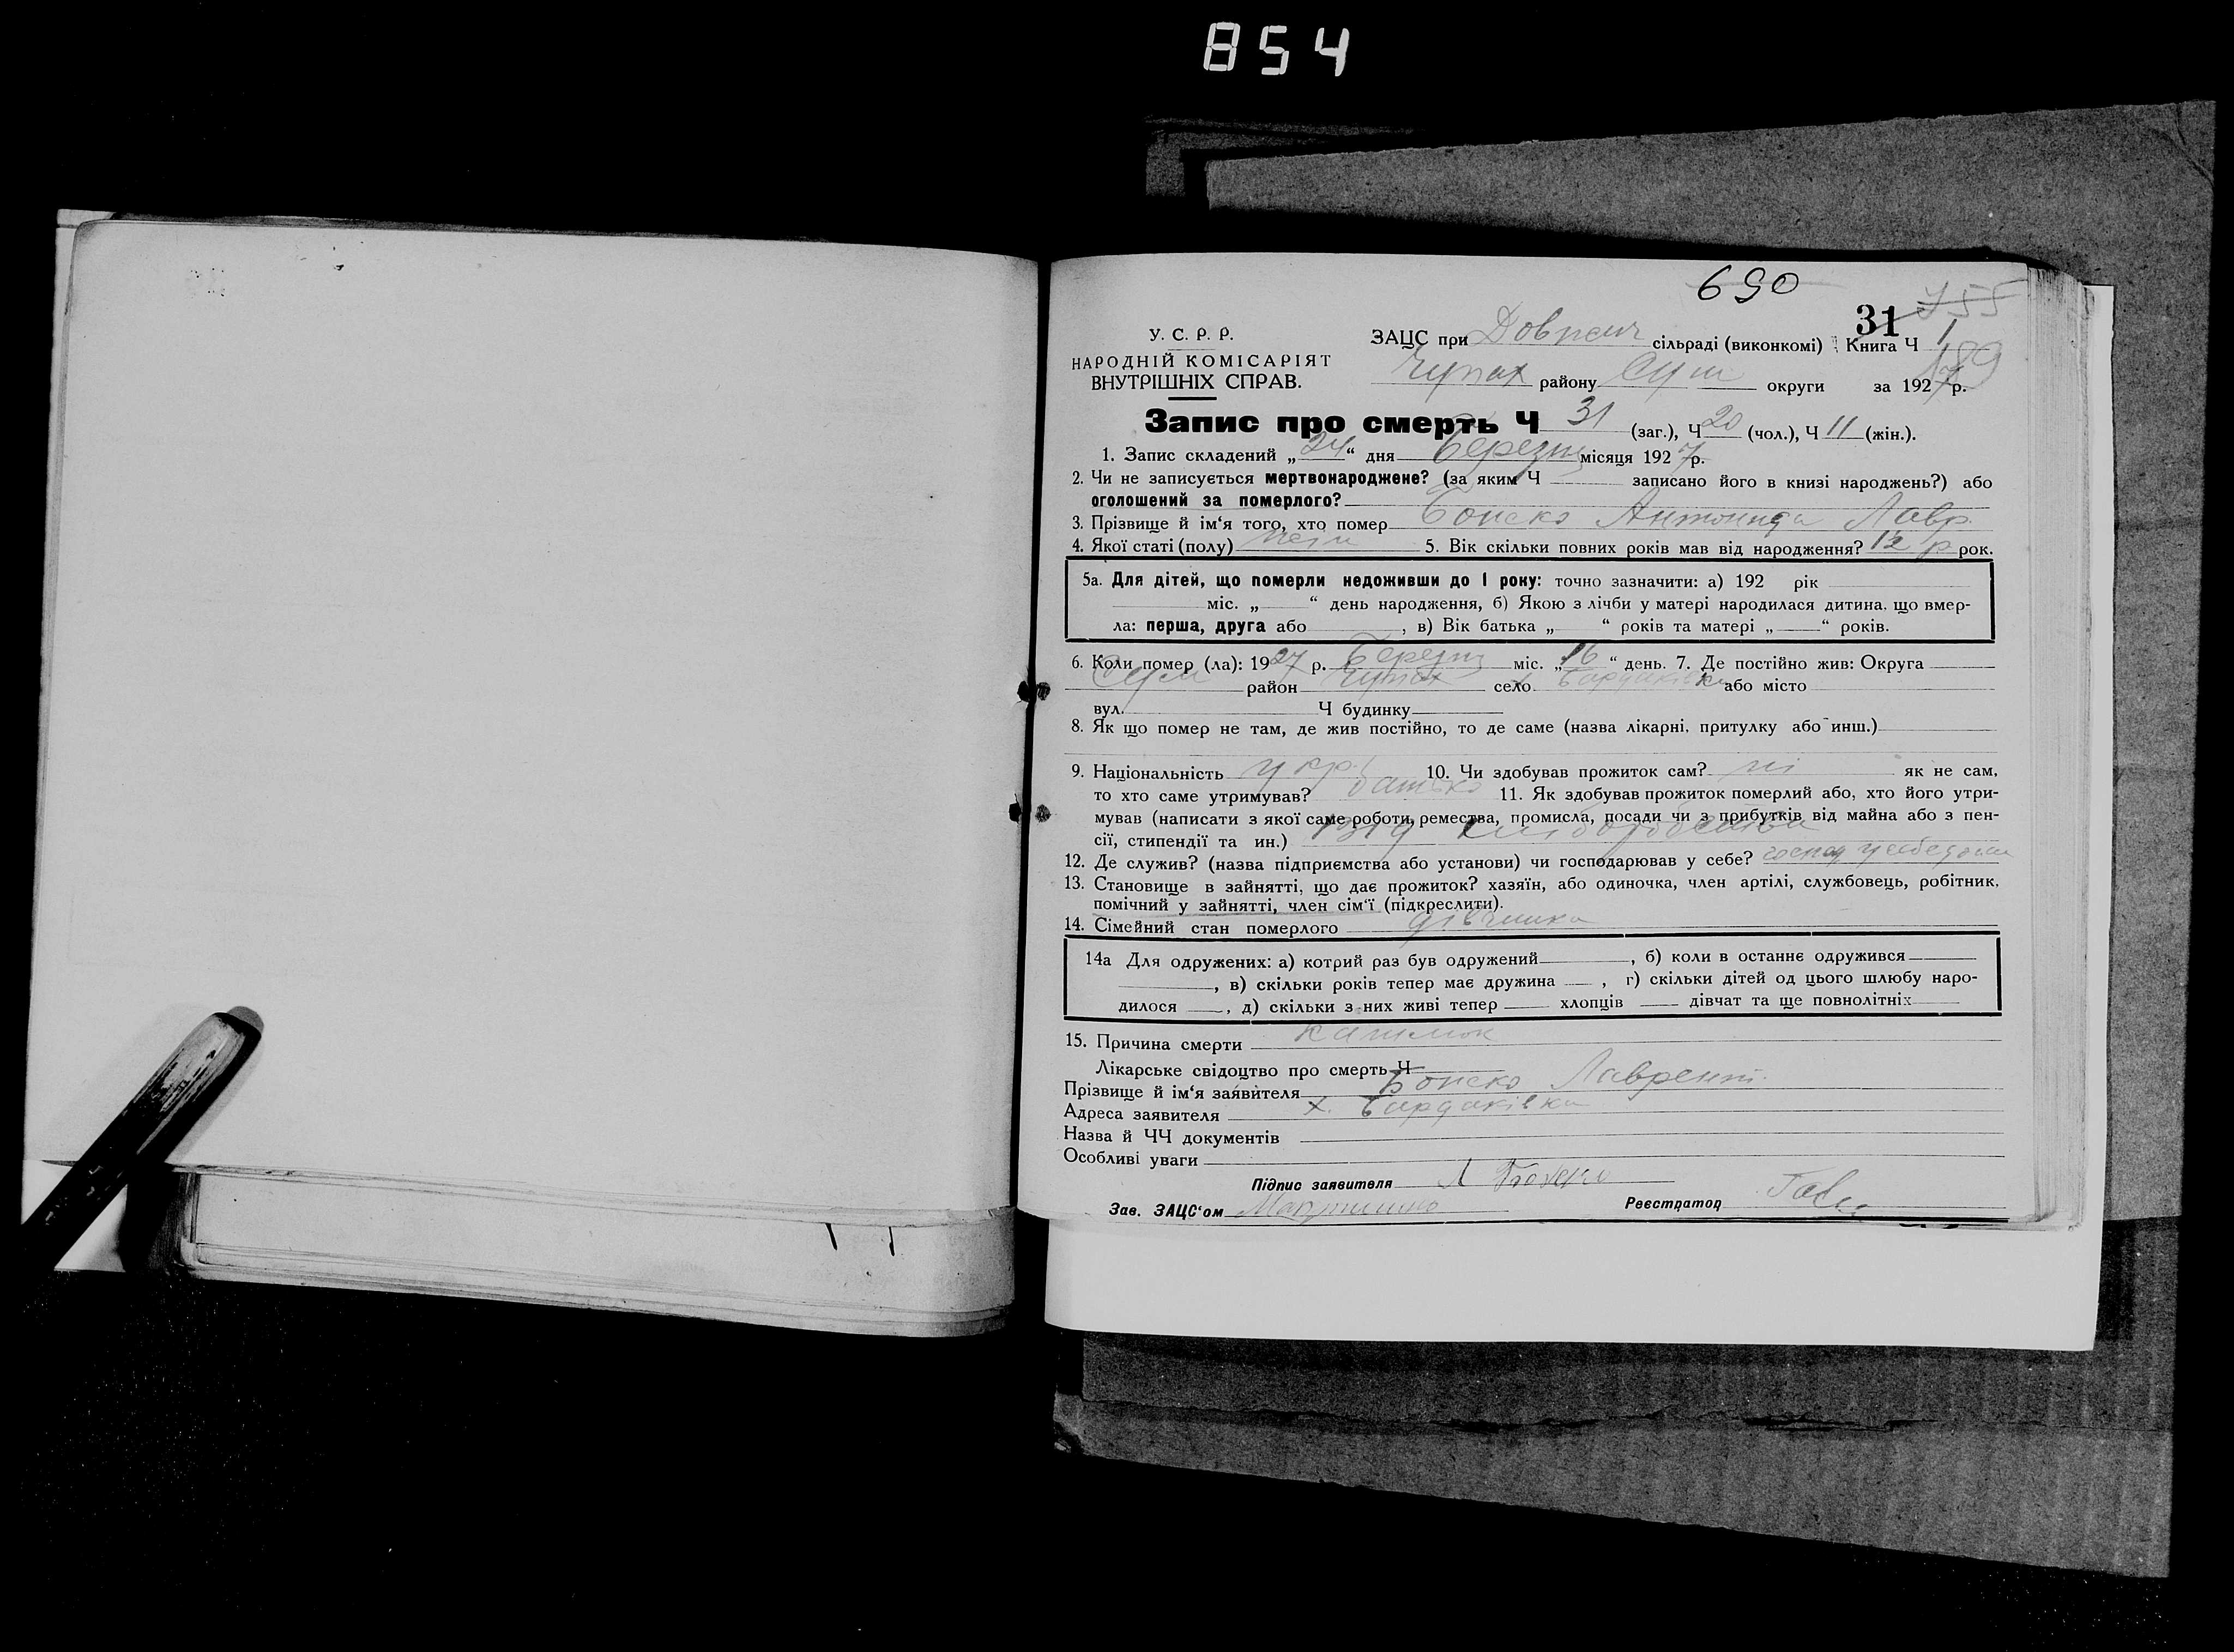 854
690
31 755
У. С. Р. Р. ЗАЦС при сільраді (виконкомі) Книга Ч 1
189
НАРОДНІЙ КОМІСАРІЯТ
ВНУТРІШНІХ СПРАВ. Чупах району Сум округи за 1927 р.
Запис про смерть Ч 31 (заг.), Ч 20 (чол.), Ч 11 (жін.).
1. Запис складений „24“ дня Березня місяця 1927 р.
2. Чи не записується мертвонароджене? (за яким Ч записано його в книзі народжень?) або
оголошений за померлого?
3. Прізвище й ім‘я того, хто помер Антонида Лавр.
4. Якої статі (полу) 5. Вік скільки повних років мав від народження? 12 р рок.
5а. Для дітей, що померли недоживши до 1 року: точно зазначити: а) 192 рік
міс. „ “ день народження, б) Якою з лічби у матері народилася дитина, що вмер-
ла: перша, друга або , в) Вік батька „ “ років та матері „ “ років.
6. Коли помер (ла): 1927 р. Березня міс. „16“ день. 7. Де постійно жив: Округа
Сум район Чупах село х Бардаківка або місто
вул. Ч будинку
8. Як що помер не там, де жив постійно, то де саме (назва лікарні, притулку або инш.)
9. Національність укр. 10. Чи здобував прожиток сам? ні як не сам,
то хто саме утримував? батько 11. Як здобував прожиток померлий або, хто його утри-
мував (написати з якої саме роботи, ремества, промисла, посади чи з прибутків від майна або з пен-
сії, стипендії та ин.) від хліборобства
12. Де служив? (назва підприємства або установи) чи господарював у себе?
13. Становище в зайнятті, що дає прожиток? хазяїн, або одиночка, член артілі, службовець, робітник,
помічний у зайнятті, член сім‘ї (підкреслити).
14. Сімейний стан померлого дівчинка
14а Для одружених: а) котрий раз був одружений , б) коли в останнє одружився
, в) скільки років тепер має дружина , г) скільки дітей од цього шлюбу наро-
дилося , д) скільки з них живі тепер хлопців дівчат та ще повнолітніх
15. Причина смерти
Лікарське свідоцтво про смерть Ч
Прізвище й ім‘я заявителя Лаврент.
Адреса заявителя х. Бардаківка
Назва й ЧЧ документів
Особливі уваги
Підпис заявителя Л
Зав. ЗАЦС‘ом Реєстратор